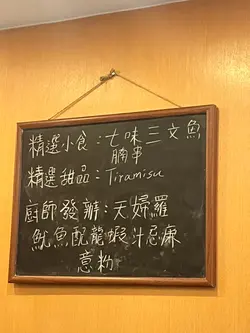 精選小食：七味三文魚
腩串
精選甜品：Tiramisu
廚師發辦：天婦羅
魷魚配龍蝦汁忌廉
意粉